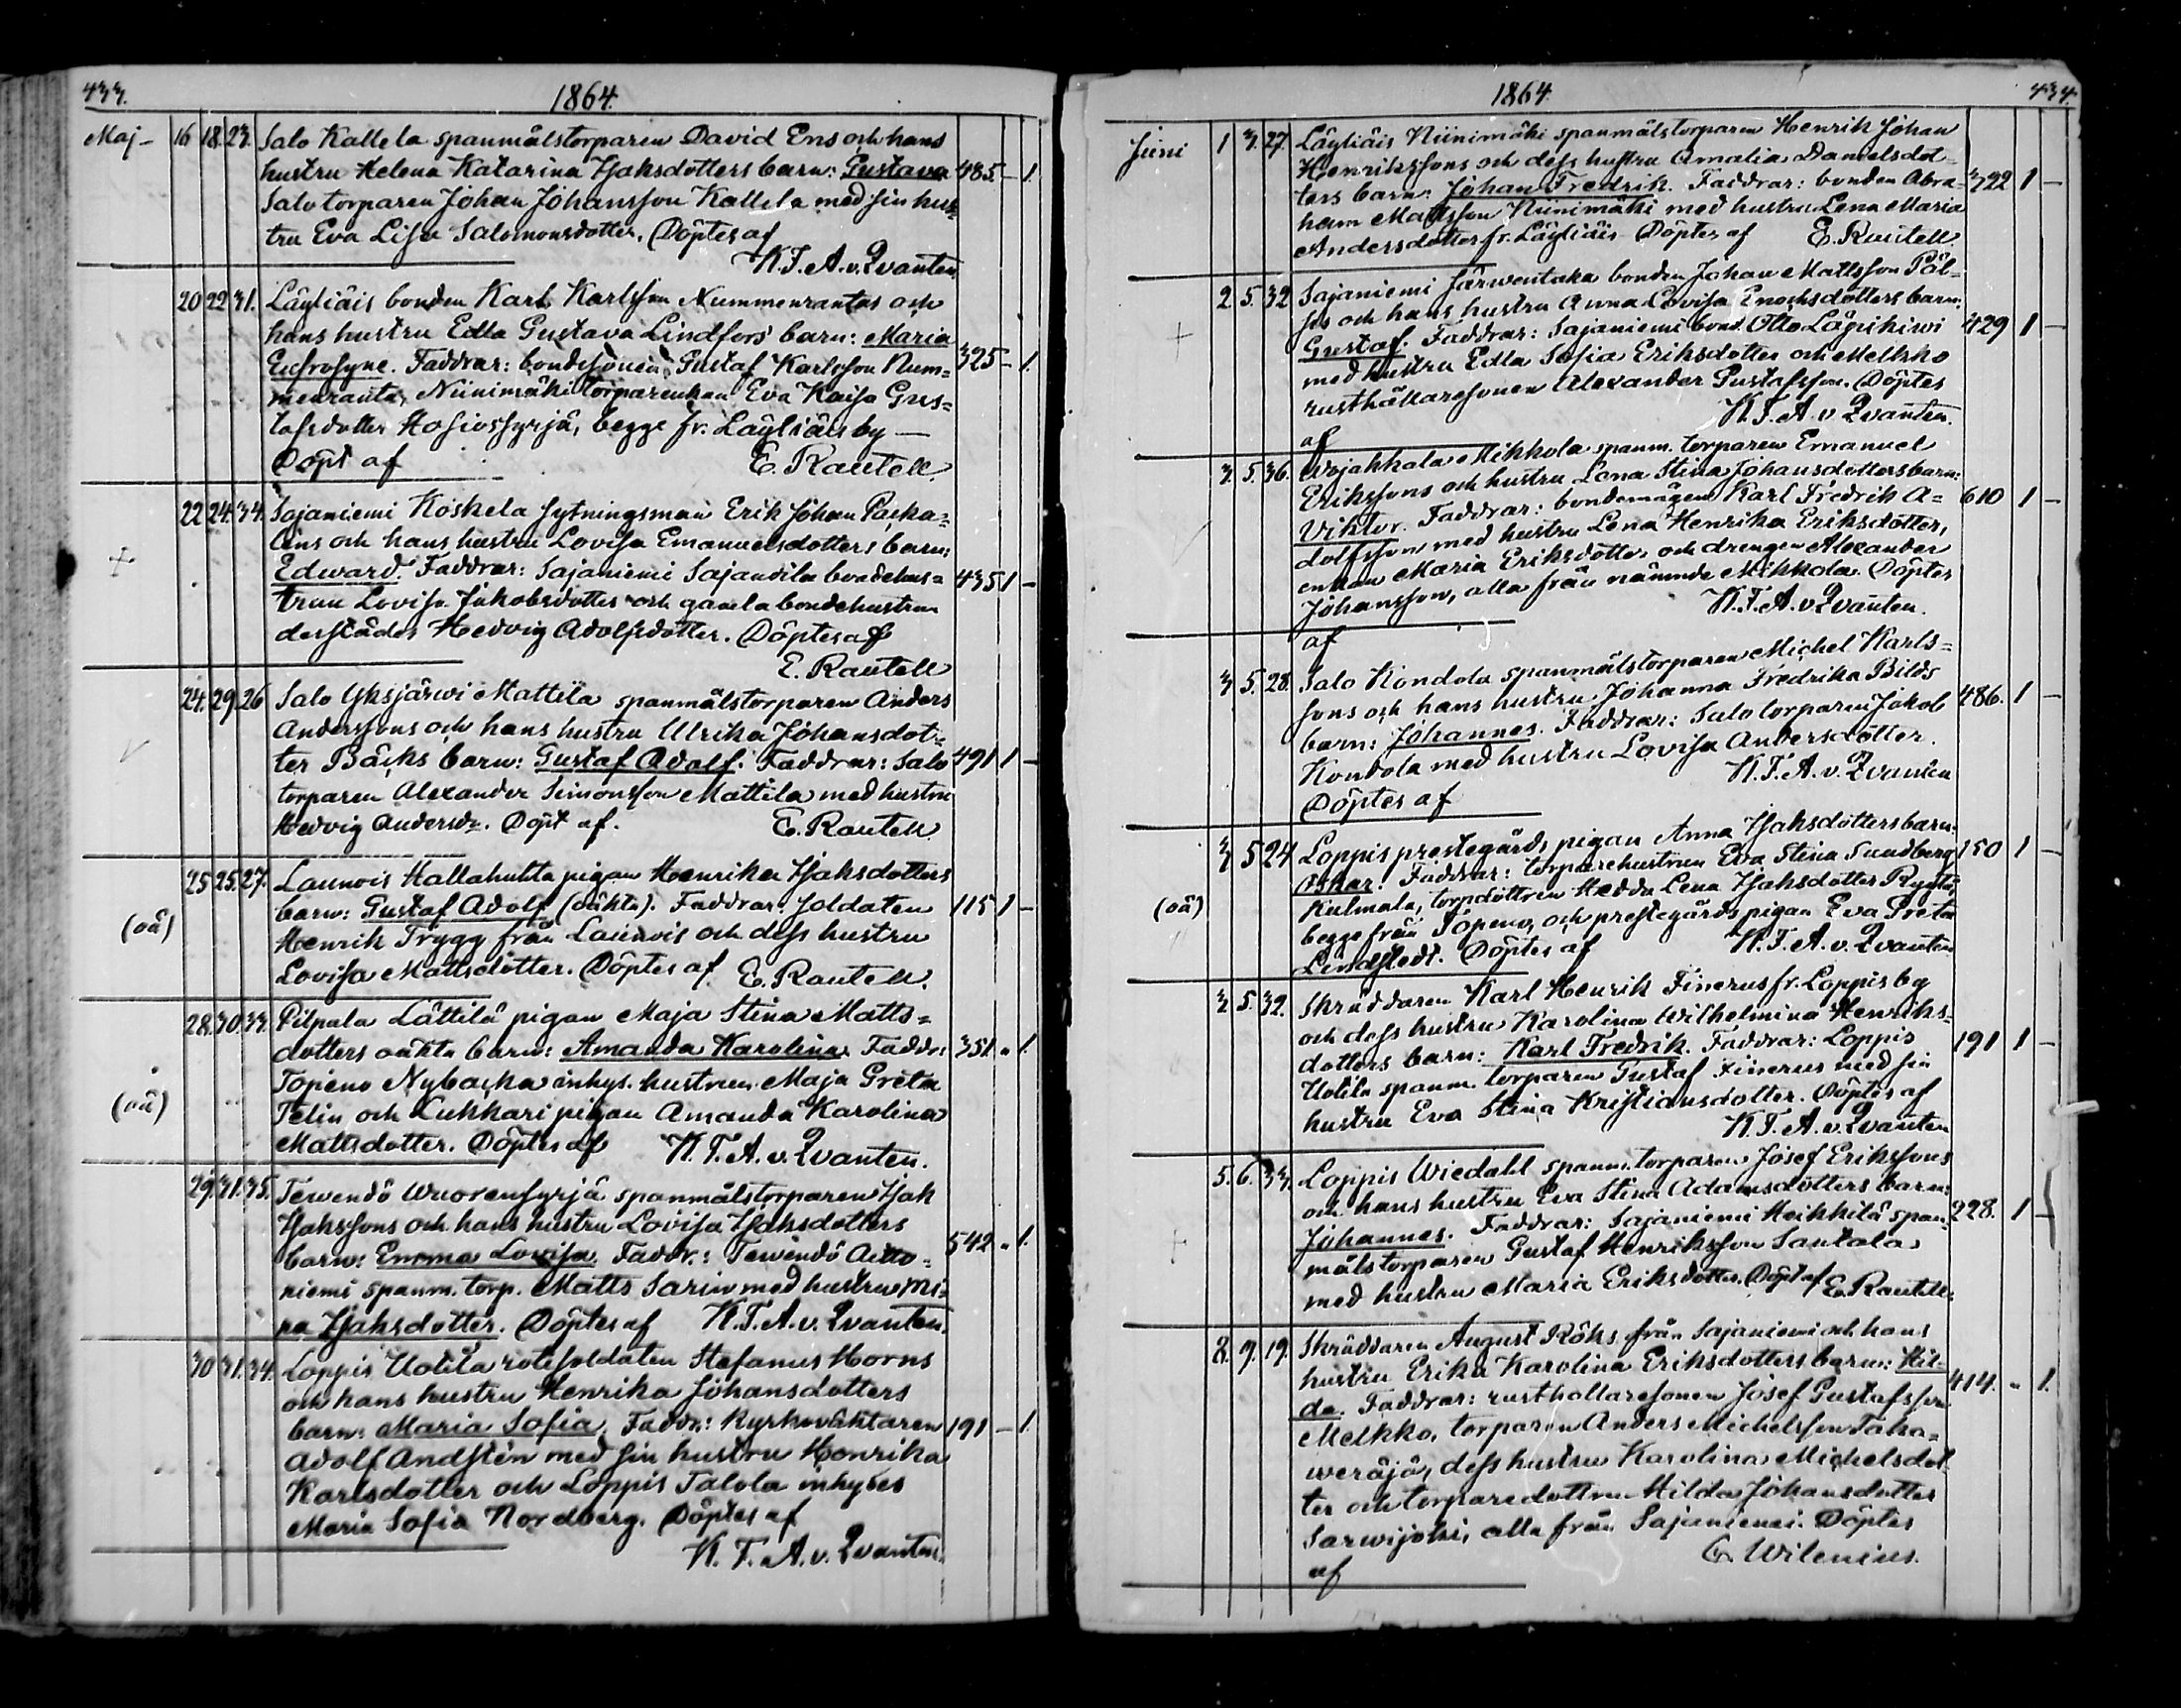 433.
1864.
Maj – 16 18. 23. Salo Kallela spanmålstorparen David Ens och hans
hustru Helena Katarina Isaksdotters barn: Gustava 485. – 1.
Salo torparen Johan Johansson Kallela med sin hus-
tru Eva Lisa Salomonsdotter. Döptes af
K.T.A.v.Qvanten.
20 22 31. Läyliäis bonden Karl Karlsson Nummenrantas och
hans hustru Edla Gustava Lindfors' barn: Maria
Eufrosyne. Faddrar: bondesonen Gustaf Karlsson Num= 325 – 1.
menranta, Niinimäki torparenkan Eva Kaisa Gus=
tafsdotter Hosiossyrjä, begge fr. Läyliäis by –
Döpt af E. Rautell.
+ 22 24. 34. Sajaniemi Koskela sytningsman Erik Johan Packa=
léns och hans hustru Lovisa Emanuelsdotters barn:
Edward. Faddrar: Sajaniemi Sajandila bondehus= 435 1 –
trun Lovisa Jakobsdotter och gamla bondehustrun
derstädes Hedvig Adolfsdotter. Döptes af
E. Rautell
24. 29. 26 Salo Yksjärwi Mattila spanmålstorparen Anders
Anderssons och hans hustru Ulrika Johansdot=
ter Bäcks barn: Gustaf Adolf. Faddrar: Salo 491 1 –
torparen Alexander Simonsson Mattila med hustru
Hedvig Andersdr. Döpt af. E. Rautell
25 25. 27. Launois Hallahuhta pigan Henrika Isaksdotters
(oä) barn: Gustaf Adolf (oäkta). Faddrar: soldaten 115 1 –
Henrik Trygg från Launois och dess hustru
Lovisa Mattsdotter. Döptes af E. Rautell.
28. 30. 33. Pilpala Lättilä pigan Maja Stina Matts=
dotters oäkta barn: Amanda Karolina. Faddr: 351. " 1.
(oä) Topeno Nybacka inhys. hustrun Maja Greta
Telin och Lukkari pigan Amanda Karolina
Mattsdotter. Döptes af K.T.A.v.Qvanten.
29. 31. 35. Tewendö Wuorensyrjä spanmålstorparen Isak
Isakssons och hans hustru Lovisa Isaksdotters
barn: Emma Lovisa. Faddr.: Tewendö Aitto= 542 " 1.
niemi spanm. torp. Matts Sarin med hustru Mi=
na Isaksdotter. Döptes af K.T.A.v.Qvanten.
30 31. 34. Loppis Uotila rotesoldaten Stefanus Horns
och hans hustru Henrika Johansdotters
barn: Maria Sofia. Faddr.: Kyrkoväktaren 191 – 1.
Adolf Andstén med sin hustru Henrika
Karlsdotter och Loppis Talola inhyses
Maria Sofia Nordberg. Döptes af
K.T.A.v.Qvanten.
1864.
434.
Juni 1 3. 27. Läyliäis Niinimäki spanmålstorparen Henrik Johan
Henrikssons och dess hustru Amalia Danielsdot=
ters barn: Johan Fredrik. Faddrar: bonden Abra= 322 1 –
ham Mattsson Niinimäki med hustru Lena Maria
Andersdotter fr. Läyliäis – Döptes af E. Rautell.
2 5. 32 Sajaniemi Järwentaka bonden Johan Mattsson Päl=
+ sis och hans hustru Anna Lovisa Enochsdotters barn:
Gustaf. Faddrar: Sajaniemi bond. Otto Läpikiwi 429 1 –
med hustru Edla Sofia Eriksdotter och Melkko
rusthållaresonen Alexander Gustafsson. Döptes
af K.T.A.v Qvanten.
3. 5. 36. Wojakkala Mikkola spanm. torparen Emanuel
Erikssons och hustru Lena Stina Johansdotters barn:
Viktor. Faddrar: bondemågen Karl Fredrik A= 610 1 –
dolfsson med hustru Lena Henrika Eriksdotter,
enkan Maria Eriksdotter och drengen Alexander
Johansson, alla från nämnde Mikkola. Döptes
af K.T.A.v Qvanten.
3 5. 28. Salo Kondola spanmålstorparen Michel Karls=
sons och hans hustru Johanna Fredrika Bilds
barn: Johannes. Faddrar: Salo torparen Jakob 486. 1 –
Kondola med hustru Lovisa Andersdotter.
Döptes af K.T.A.v.Qvanten
3 5 24 Loppis prestegårds pigan Anna Isaksdotters barn:
Oskar. Faddrar: torparehustrun Eva Stina Sundberg 150 1 –
(oä) Kulmala, torpdottren Hedda Lena Isaksdotter
begge från Topeno, och prestegårds pigan Eva Greta
Lindstedt. Döptes af K.T.A.v.Qvanten
3 5. 32. Skräddaren Karl Henrik Finerus fr. Loppis by
och dess hustru Karolina Wilhelmina Henriks=
dotters barn: Karl Fredrik. Faddrar: Loppis 191 1 –
Uotila spanm. torparen Gustaf Finerus med sin
hustru Eva Stina Kristiansdotter. Döptes af
K.T.A.v.Qvanten
5. 6. 33. Loppis Wiedahl spanm. torparen Josef Erikssons
och hans hustru Eva Stina Adamsdotters barn:
+ Johannes. Faddrar: Sajaniemi Heikkilä span= 228. 1 –
målstorparen Gustaf Henriksson Santala
med hustru Maria Eriksdotter. Döpt af E. Rautell.
8. 9. 19. Skräddaren August Röks från Sajaniemi och hans
hustru Erika Karolina Eriksdotters barn: Hil=
da. Faddrar: rusthållaresonen Josef Gustafsson 414. " 1.
Melkko, torparen Anders Michelsson Taka=
weräjä, dess hustru Karolina Michelsdot=
ter och torparedottren Hilda Johansdotter
Sarwijoki, alla från Sajaniemi. Döptes
af G. Wilenius.